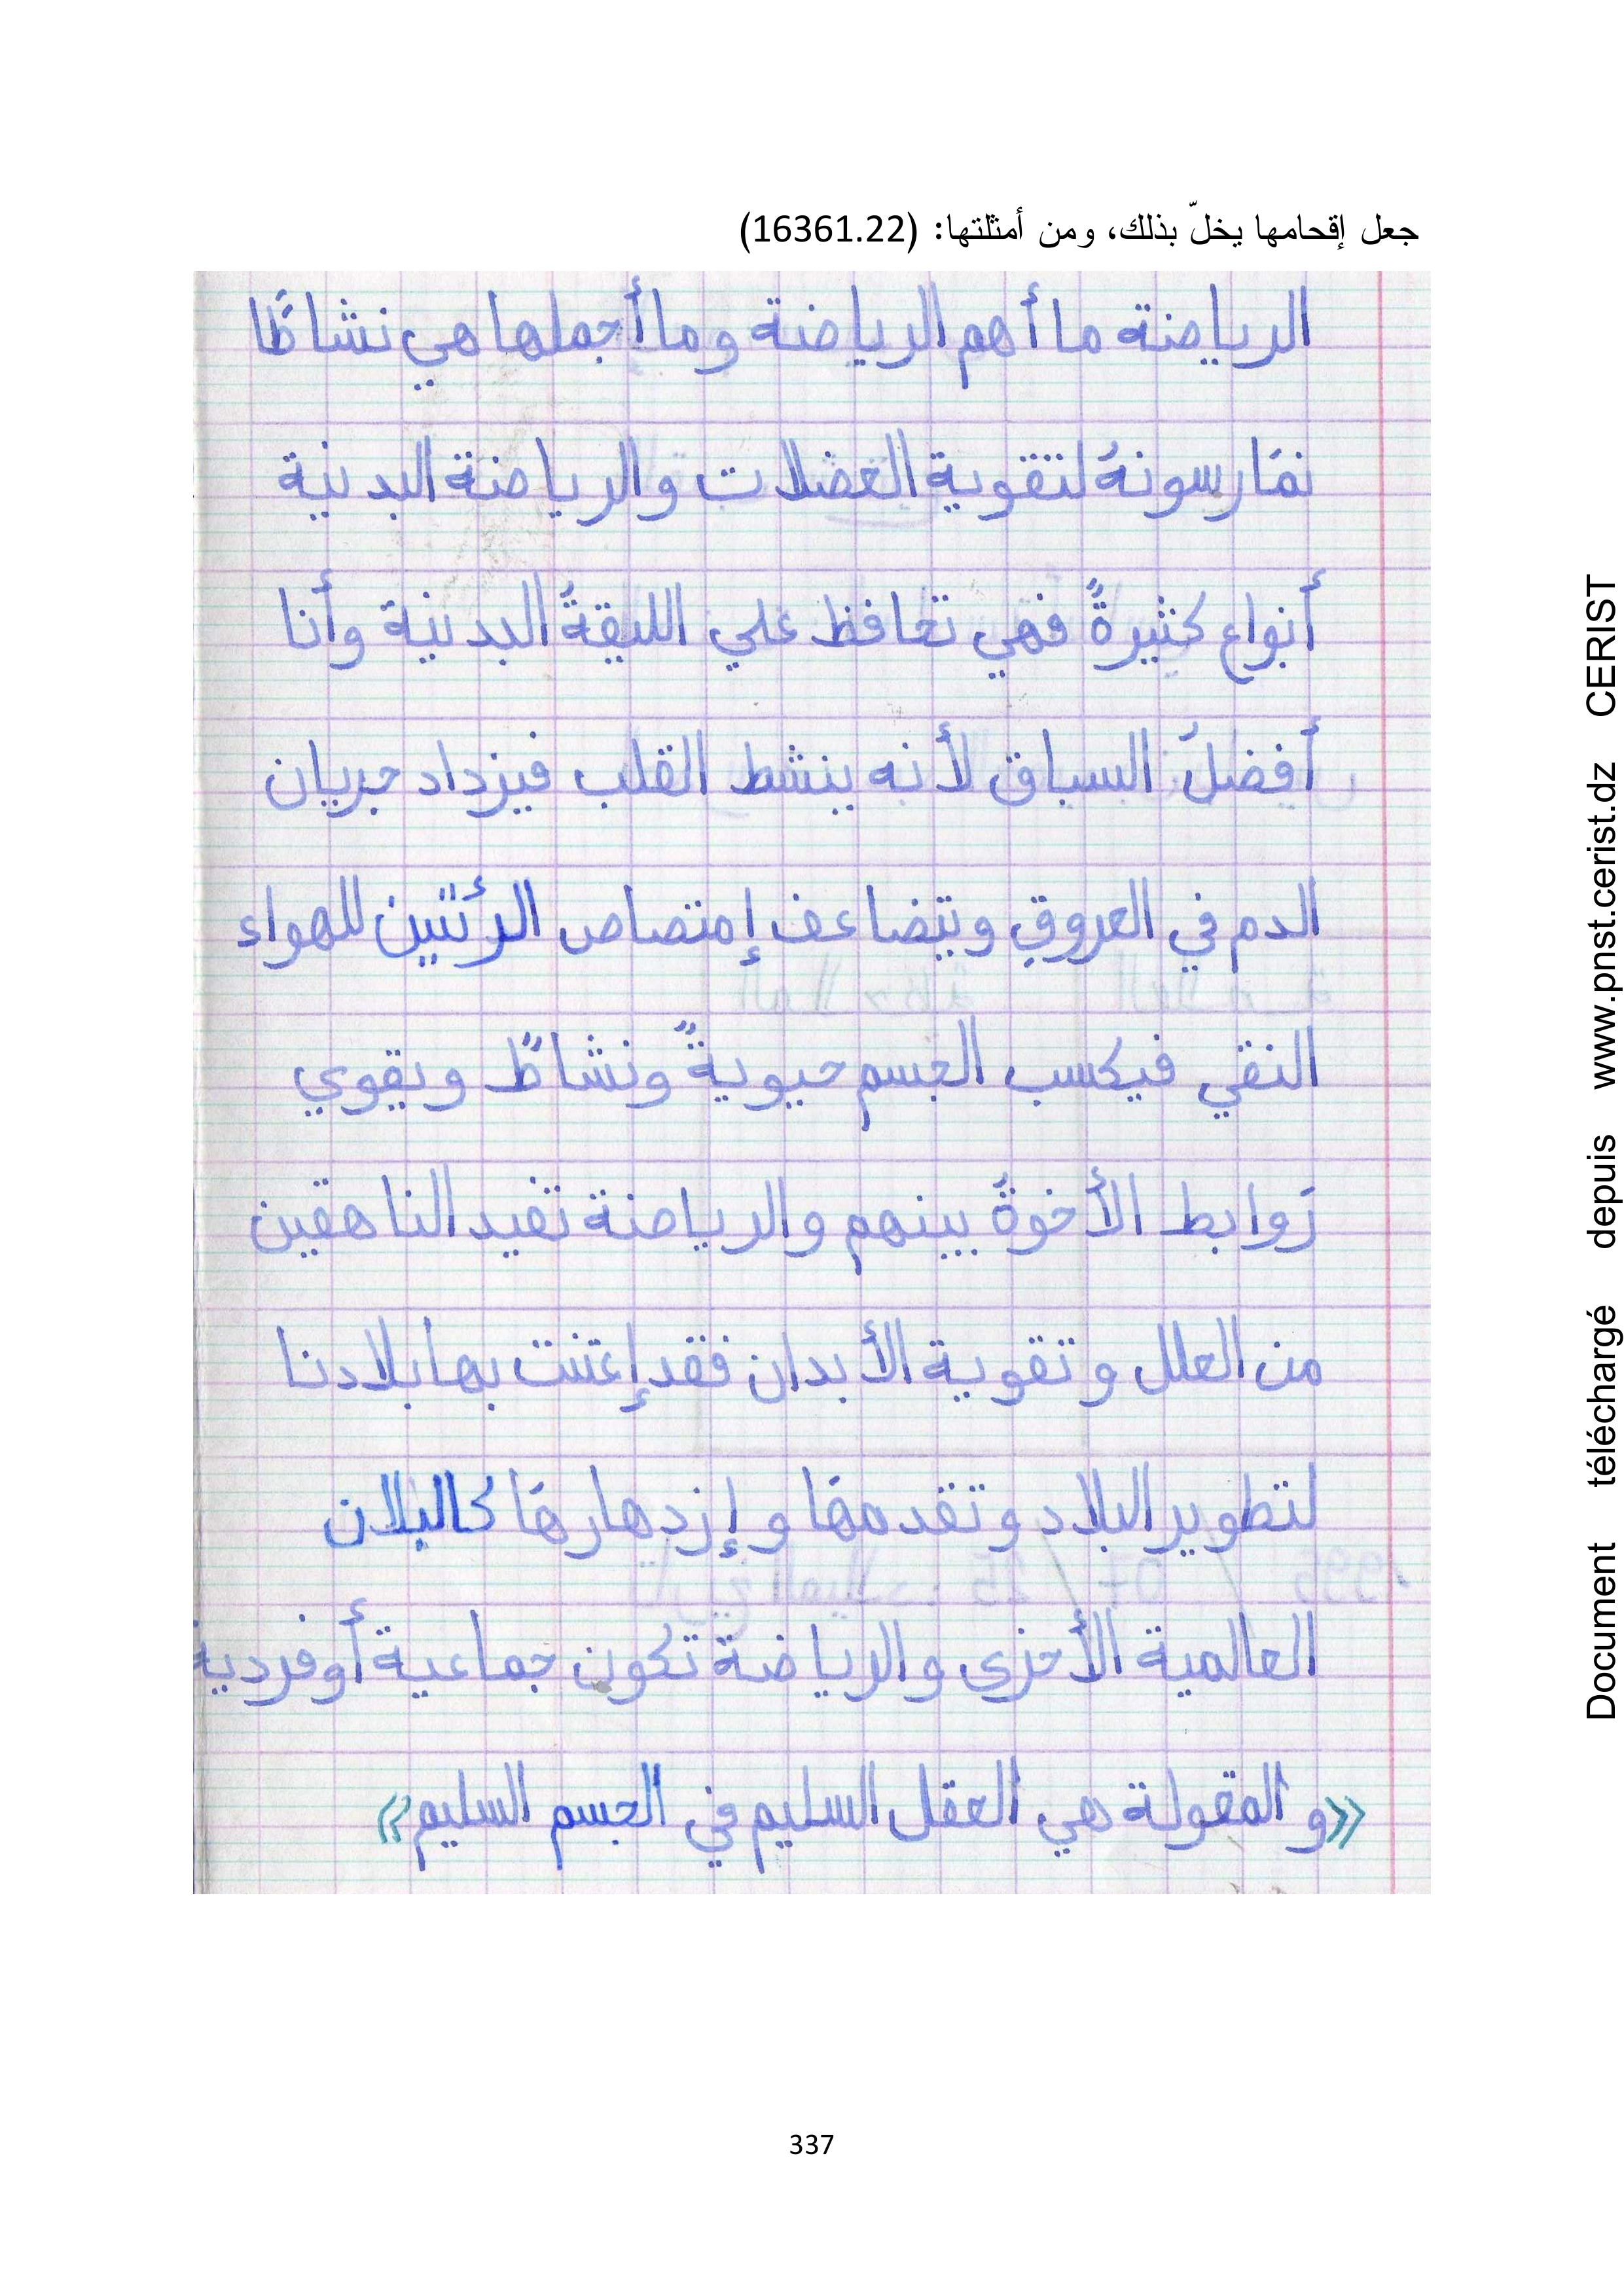 جعل إقحامها يخلّ بذلك، ومن أمثلتها: (16361.22)
الرياضة ما أهم الرياضة وما أجملها هي نشاطًا
نمَارسونهُ لتقوية العضلات والرياضة البدنية
أنواع كثيرةً فهي تحافظ علي الليقةُ البدنية وأنا
أفضلُ السباق لأنه ينشط القلب فيزداد جريان
الدم في العروقِ ويتضاعف إمتصاص الرئتين للهواء
النقي فيكسب الجسم حيويةً ونشاطً ويقوي
رَوابط الأخوةُ بينهم والرياضة تفيد الناهقين
من العلل وتقوية الأبدان فقد إعتنت بها بلادنا
لتطوير البلاد وتقدمهَا وإزدهارهَا كالبلان
العالمية الأخرى والرياضة تكون جماعية أو فردية
«و المقولة هي العقل السليم في الجسم السليم»
337
Document téléchargé depuis www.pnst.cerist.dz CERIST